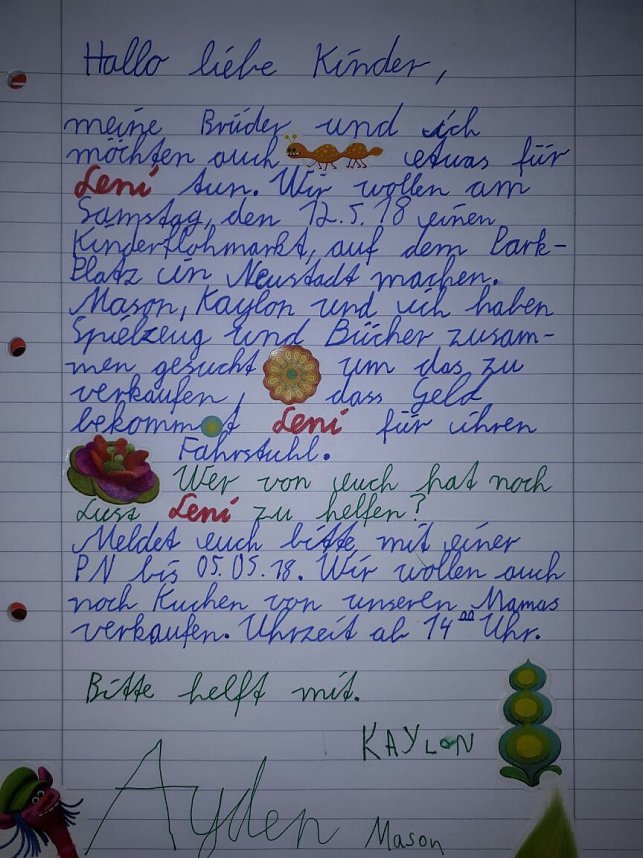 Hallo liebe Kinder,
meine Brüder und ich
möchten auch etwas für
Leni tun. Wir wollen am
Samstag, den 12.5.18 einen
Kinderflohmarkt, auf dem Park-
Platz in Neustadt machen.
Mason, Kaylon und ich haben
Spielzeug und Bücher zusam-
men gesucht um das zu
verkaufen, dass Geld
bekommt Leni für ihren
Fahrstuhl.
Wer von euch hat noch
Lust Leni zu helfen?
Meldet euch bitte mit einer
PN bis 05.05.18. Wir wollen auch
noch Kuchen von unseren Mamas
verkaufen. Uhrzeit ab 14⁰⁰ Uhr.
Bitte helft mit.
KAYLON
Ayden
Mason